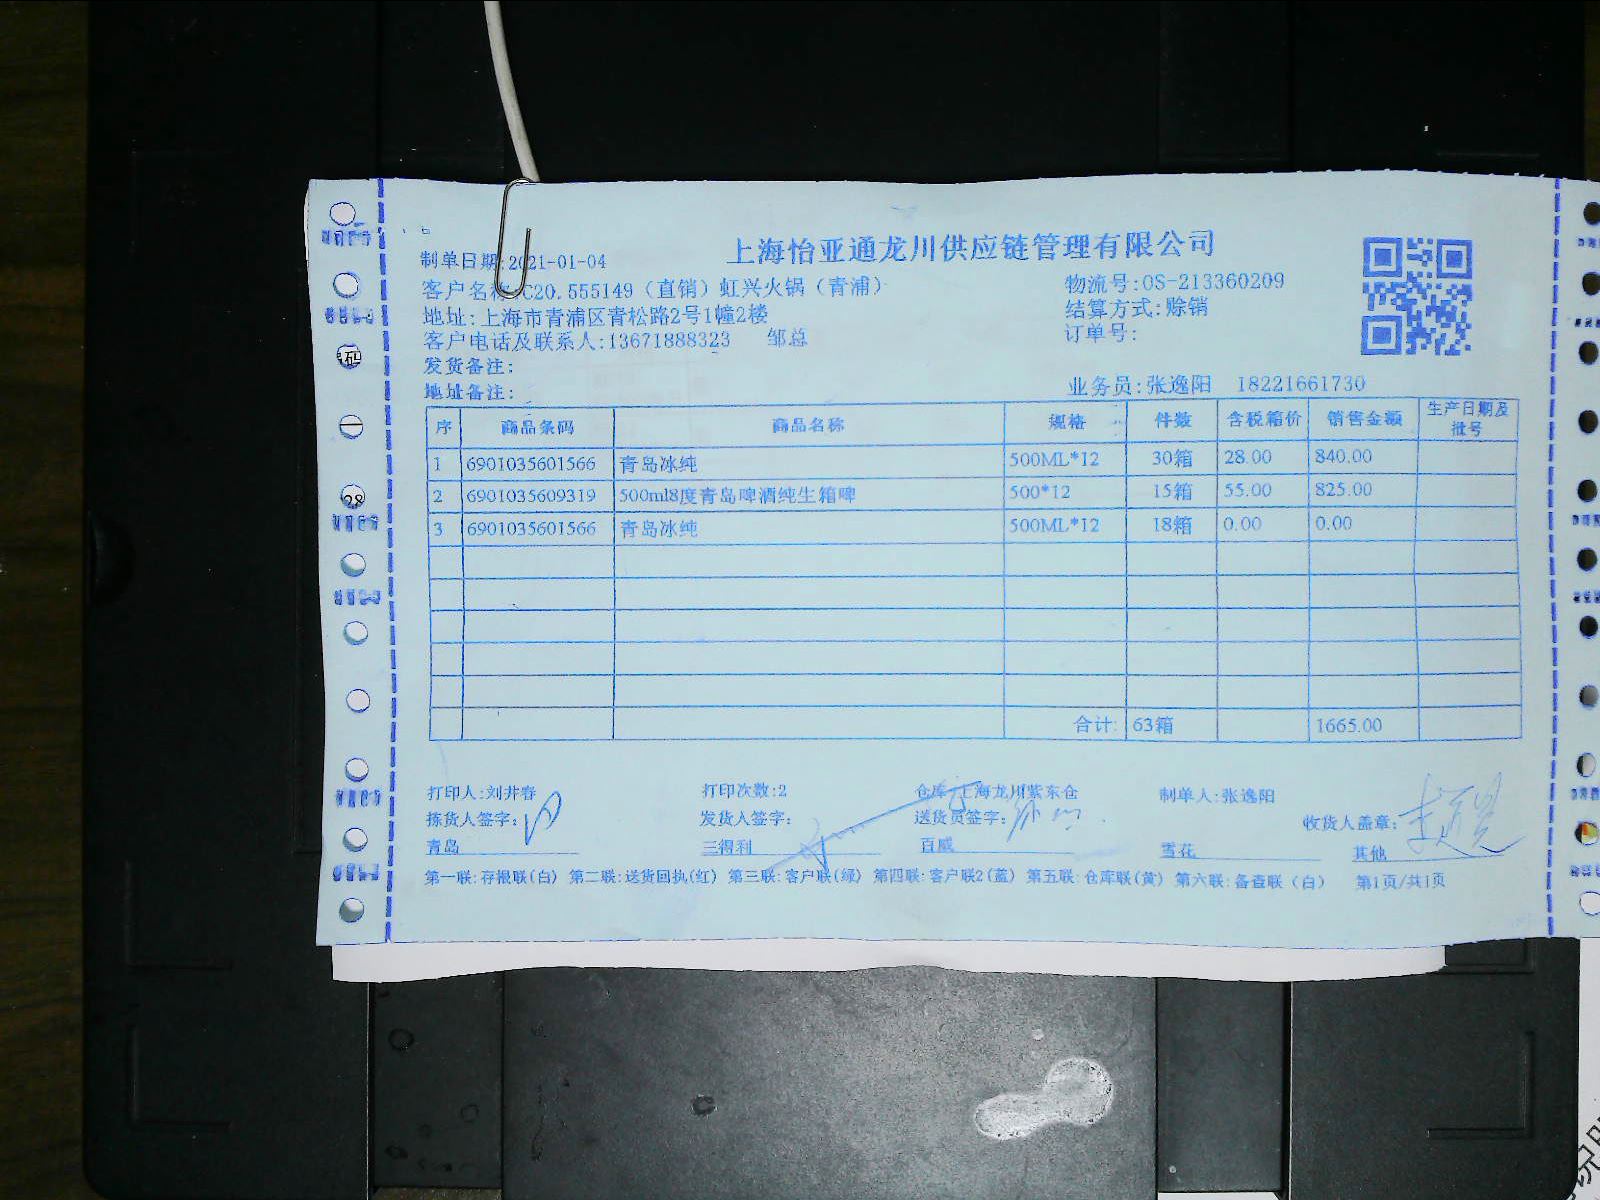 上海怡亚通龙川供应链管理有限公司
制单日期:2021-01-04
客户名称:C20.555149（直销）虹兴火锅（青浦） 物流号:OS-213360209
地址:上海市青浦区青松路2号1幢2楼 结算方式:赊销
客户电话及联系人:13671888323 邹总 订单号:
发货备注:
地址备注: 业务员:张逸阳 18221661730
序 商品条码 商品名称 规格 件数 含税箱价 销售金额 生产日期及批号
1 6901035601566 青岛冰纯 500ML*12 30箱 28.00 840.00
2 6901035609319 500ml8度青岛啤酒纯生箱啤 500*12 15箱 55.00 825.00
3 6901035601566 青岛冰纯 500ML*12 18箱 0.00 0.00
合计: 63箱 1665.00
打印人:刘井春 打印次数:2 仓库:上海龙川紫东仓 制单人:张逸阳
拣货人签字: 发货人签字: 送货员签字: 收货人盖章:
青岛 三得利 百威 雪花 其他
第一联:存根联(白) 第二联:送货回执(红) 第三联:客户联(绿) 第四联:客户联2(蓝) 第五联:仓库联(黄) 第六联:备查联（白） 第1页/共1页